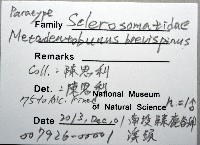 Paratype
Family Sclerosomatidae
Metadentobunus brevispinus
Remarks
Coll.: 陳思利
Det.: 陳思利
National Museum
75% Alc. Fixed
of Natural Science n=1♂
Date 2013. Dec. 01 南投縣鹿谷鄉
007926-00001 溪頭